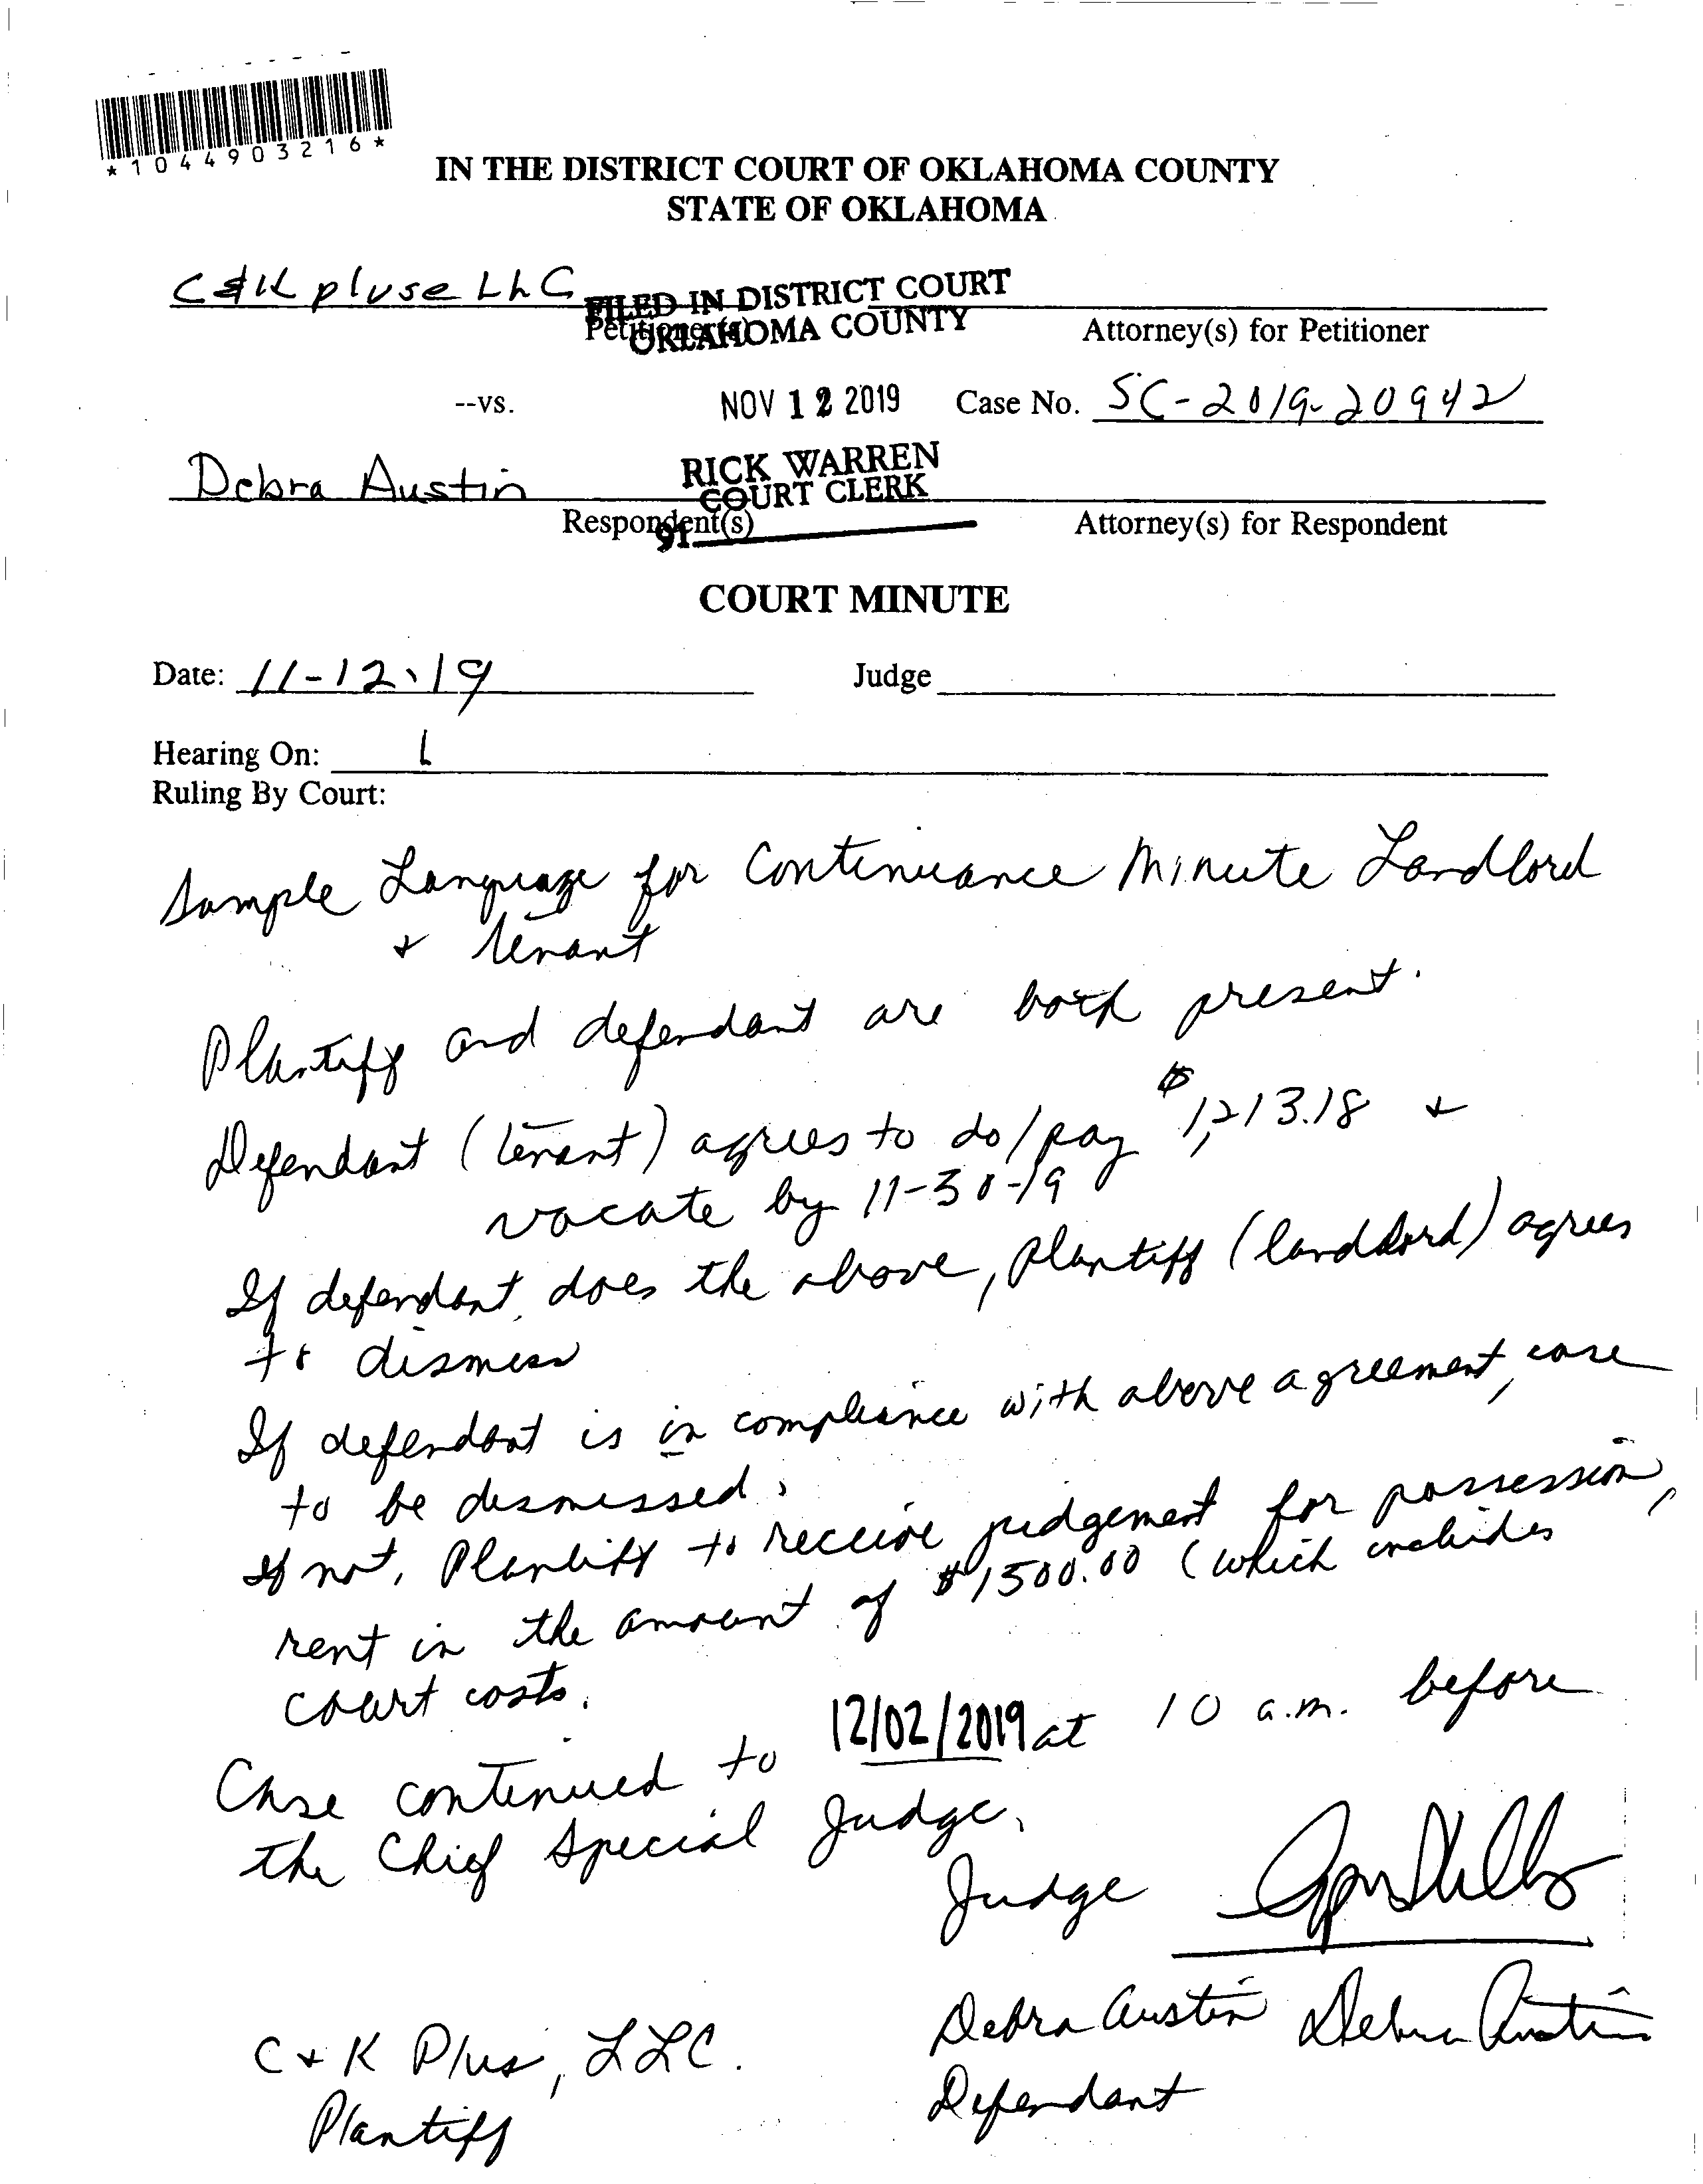 *1044903216*
IN THE DISTRICT COURT OF OKLAHOMA COUNTY
STATE OF OKLAHOMA
C&K pluse LLC
FILED IN DISTRICT COURT
OKLAHOMA COUNTY
Petitioner(s)
Attorney(s) for Petitioner
--vs.
NOV 12 2019
Case No. SC-2019-20942
Debra Austin
RICK WARREN
COURT CLERK
Respondent(s)
91
Attorney(s) for Respondent
COURT MINUTE
Date: 11-12-19
Judge
Hearing On:
Ruling By Court:
Sample Language for Continuance Minute Landlord
& tenant
Plantiff and defendant are both present.
Defendant (tenant) agrees to do/pay $1,213.18 &
vacate by 11-30-19
If defendant does the above, plantiff (landlord) agrees
to dismiss
If defendant is in compliance with above agreement, case
to be dismissed.
If not, Plantiff to receive judgement for possession,
rent in the amount of $1500.00 (which includes
court costs.
Case continued to 12/02/2019 at 10 a.m. before
the Chief Special Judge.
Judge
C & K Plus, LLC.
Plantiff
Debra Austin Debra Austin
Defendant